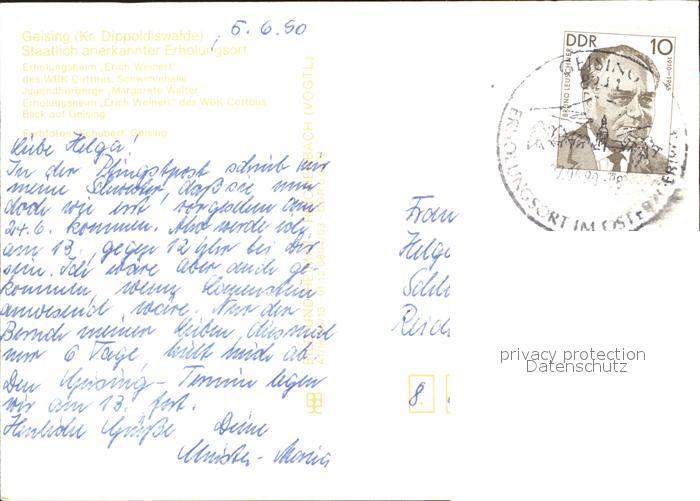 5.6.90
Geising (Kr. Dippoldiswalde)
Staatlich anerkannter Erholungsort
Erholungsheim „Erich Weinert"
des WBK Cottbus, Schwimmhalle
Jugendherberge „Margarete Walter
Erholungsheim „Erich Weinert" des WBK Cottbus
Blick auf Geising
Farbfotos: Schubert, Geising
Liebe Helga!
In der Pfingstpost schrieb mir
meine Schwester, daß sie nun
doch wie erst vorgesehen am
24.6. kommen. Also werde ich
am 13. gegen 12 Uhr bei Dir
sein. Ich wäre aber auch ge-
kommen, wenn
anwesend wäre. Nur der
Besuch meiner Lieben, diesmal
nur 6 Tage, hielt mich ab.
Den Geising-Termin legen
wir am 13. fest.
Herzliche Grüße Deine
Minister-Maria
BACH (VOGTL)
DDR 10
BRUNO LEUSCHNER
1910-1965
GEISING
8242
ERHOLUNGSORT IM OSTERZ
Frau
Helga
Schl
Reich
8.
privacy protection
Datenschutz